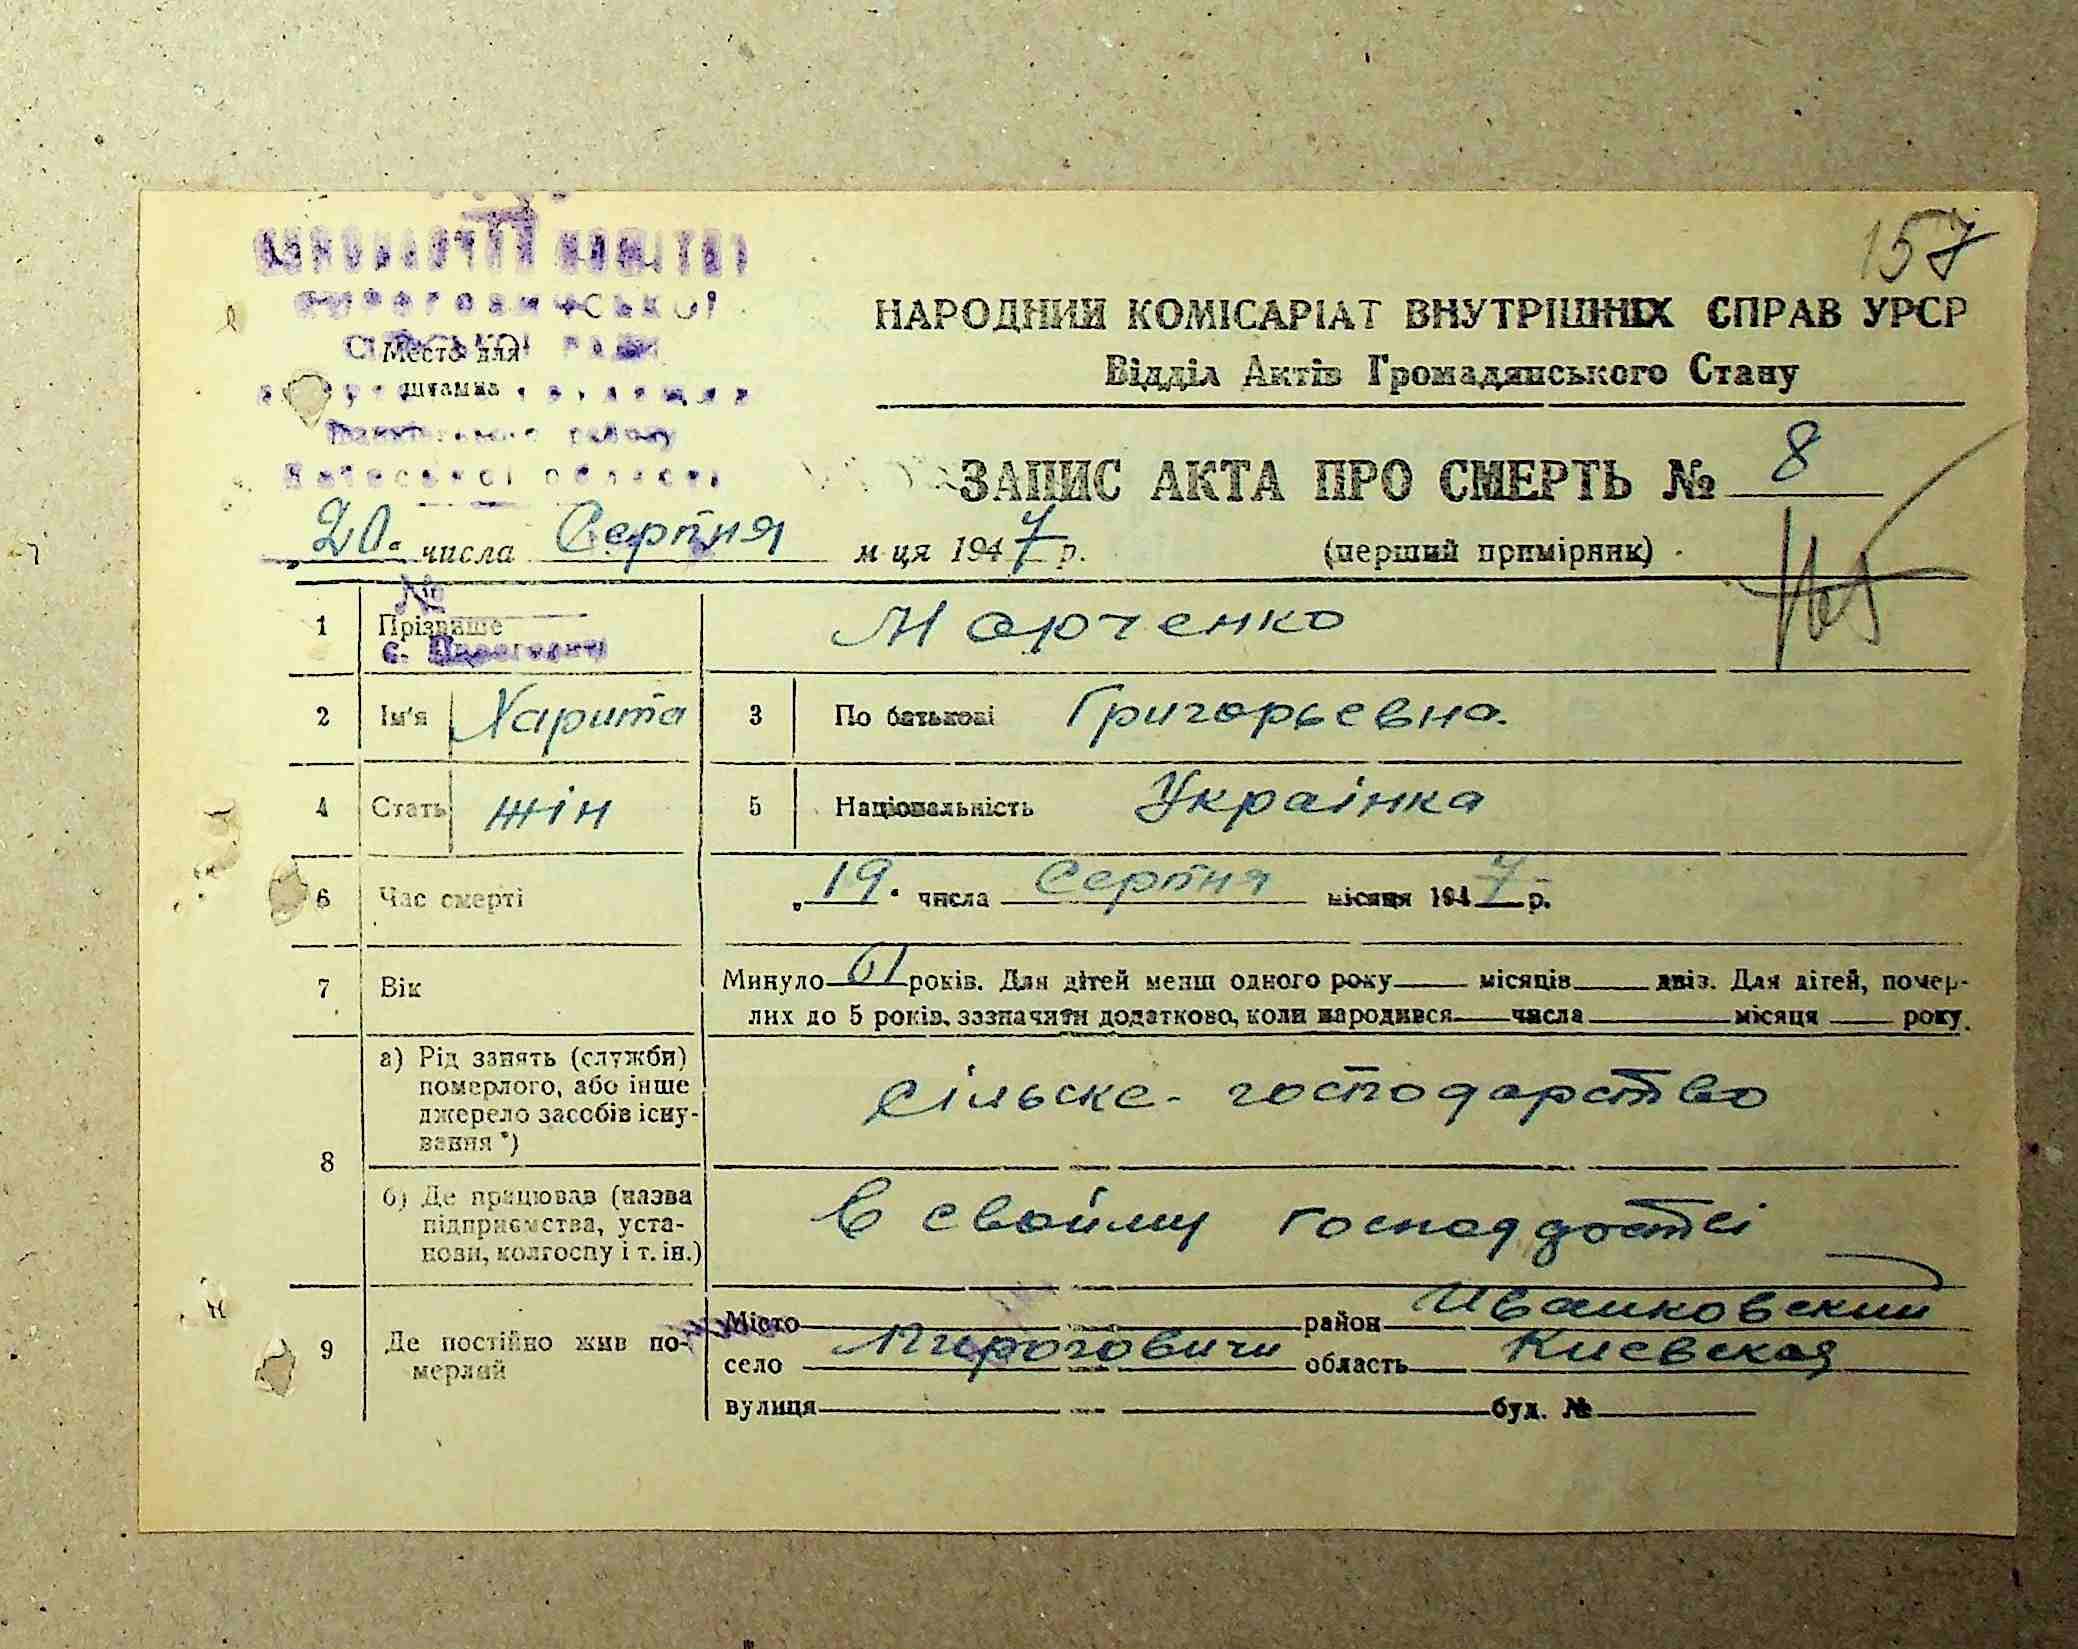 157
НАРОДНИЙ КОМІСАРІАТ ВНУТРІШНІХ СПРАВ УРСР
Відділ Актів Громадянського Стану
Место для
штампа
району
області
ЗАПИС АКТА ПРО СМЕРТЬ № 8
"20" числа Серпня м-ця 1947 р. (перший примірник)
№
1 Прізвище Марченко
с.
2 Ім'я Харита 3 По батькові Григорьевна.
4 Стать жін 5 Національність Українка
6 Час смерті "19" числа Серпня місяця 1947 р.
7 Вік Минуло 61 років. Для дітей менш одного року місяців двів. Для дітей, помер-
лих до 5 років, зазначити додатково, коли народився числа місяця року.
8 а) Рід занять (служби) померлого, або інше джерело засобів існу-вання*) Сільске-господарство
б) Де працював (назва підприємства, уста-нови, колгоспу і т. ін.) в своїму
9 Де постійно жив по-мерлий Місто район Иванковский
село Пироговичи область Киевская
вулиця буд. №